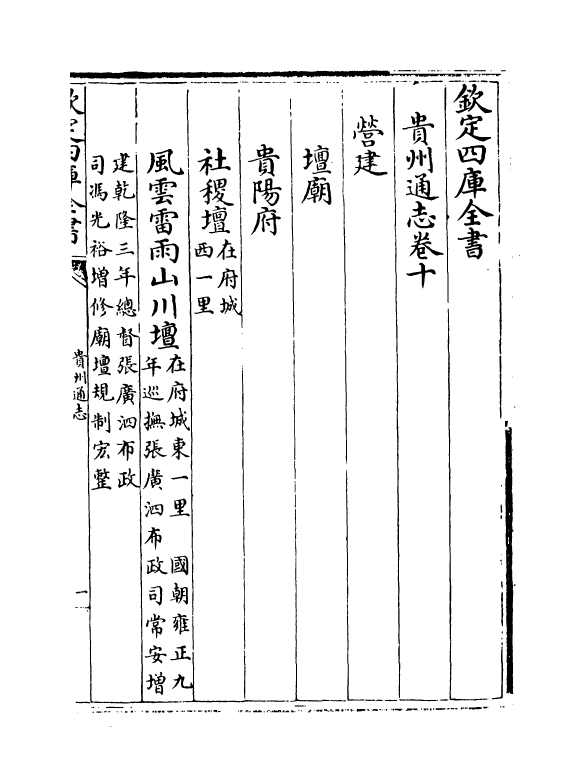 欽定四庫全書
貴州通志卷十
營建
壇廟
貴陽府
社稷壇在府城
西一里
風雲雷雨山川壇在府城東一里　國朝雍正九
年巡撫張廣泗布政司常安增
建乾隆三年總督張廣泗布政
司馮光裕增修廟壇規制宏整
欽定四庫全書
貴州通志
一